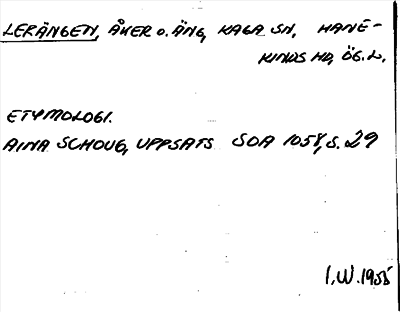 LERÄNGEN, ÅKER o. ÄNG, KAGA SN, HANE-
KINDS HD, ÖG. L.
ETYMOLOGI.
AINA SCHOUG, UPPSATS SOA 1058, S. 29
I.W. 1955